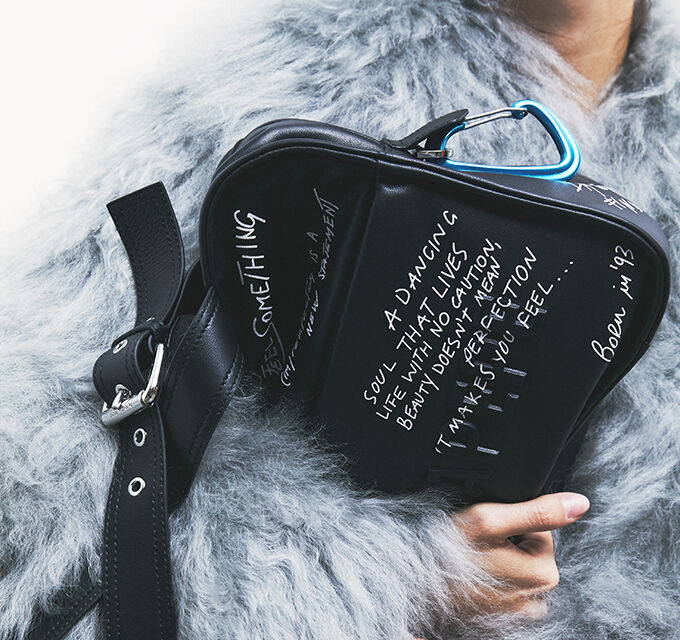 FEEL SOMETHING
IS A
NEW STATEMENT
A DANCING
SOUL THAT LIVES
LIFE WITH NO CAUTION,
BEAUTY DOESN'T MEAN
PERFECTION
IT MAKES YOU FEEL....
Born in '93